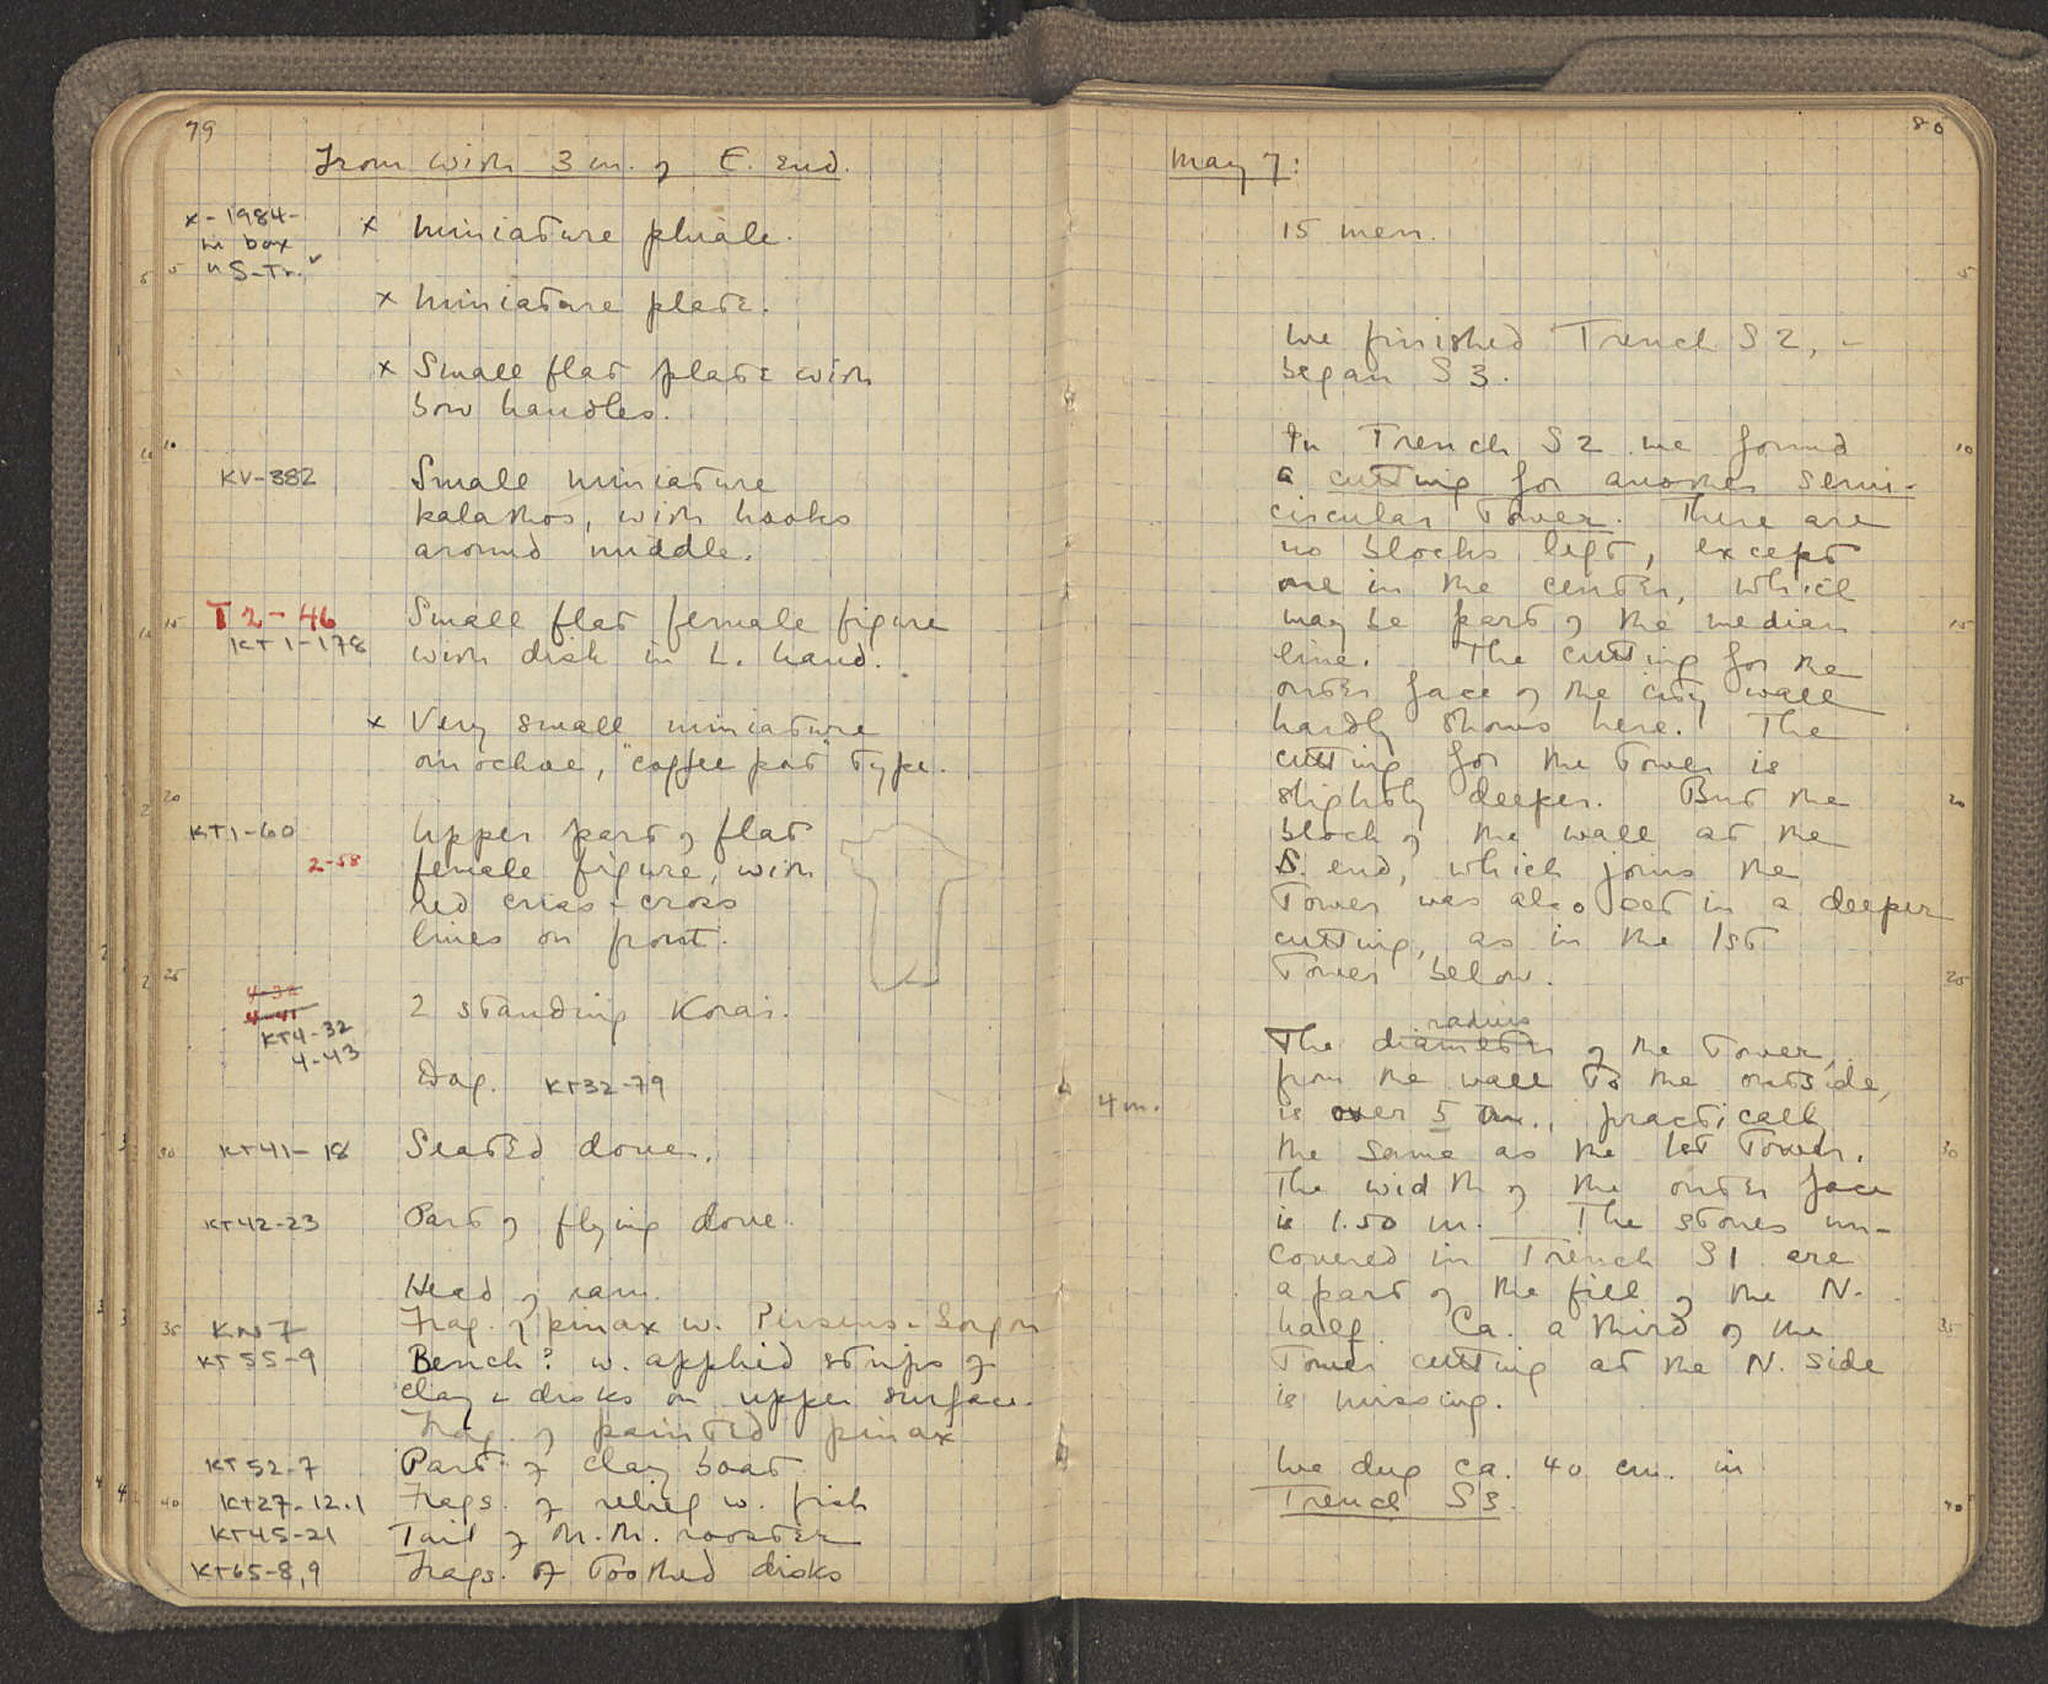 79
From with 3 m. of E. end.
x - 1984 -
in box
"S-Tr."
x Miniature phiale.
x Miniature plate.
x Small flat plate with
bow handles.
KV-382
Small miniature
kalathos, with hooks
around middle.
T 2-46
KT1-178
Small flat female figure
with disk in L. hand.
x Very small miniature
oinochoe, "coffee pot" type.
KT1-60
2-58
Upper part of flat
female figure, with
red criss-cross
lines on front.
4-32
4-41
KT4-32
4-43
2 standing Korai.
Dog. KT32-79
KT41-18 Seated dove.
KT42-23 Part of flying dove.
Head of ram.
KN7 Frag. of pinax w. Perseus - Gorgon
KT55-9 Bench? w. applied strips of
clay & disks on upper surface.
Frag. of painted pinax
KT52-7 Part of clay boat
KT27-12.1 Frags. of relief w. fish
KT45-21 Tail of M.M. rooster
KT65-8,9 Frags. of toothed disks
80
May 7:
15 men.
We finished Trench S2, -
began S3.
In Trench S2 we found
a cutting for another semi-
circular Tower. There are
no blocks left, except
one in the center, which
may be part of the median
line. The cutting for the
outer face of the city wall
hardly shows here. The
cutting for the Tower is
slightly deeper. But the
block of the wall at the
S. end, which joins the
Tower was also set in a deeper
cutting, as in the 1st
Tower below.
radius
The diameter of the Tower,
from the wall to the outside,
4 m.
is over 5 m., practically
the same as the 1st Tower.
The width of the outer face
is 1.50 m. The stones un-
covered in Trench S1 are
a part of the fill of the N.
half. Ca. a third of the
Tower cutting at the N. side
is missing.
We dug ca. 40 cm. in
Trench S3.